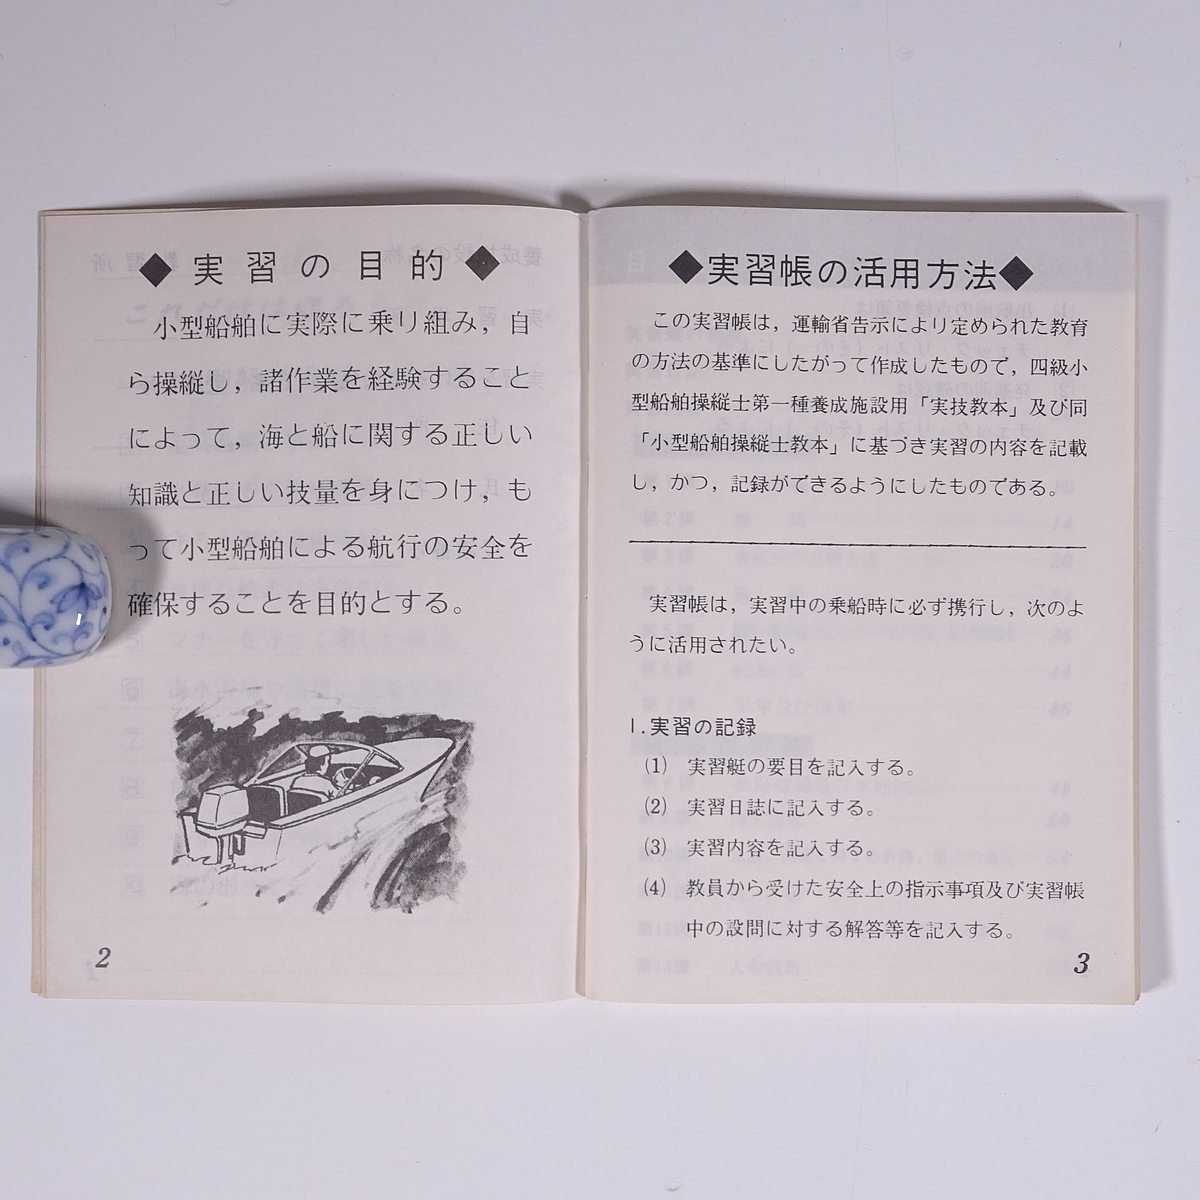 ◆実習の目的◆
小型船舶に実際に乗り組み，自
ら操縦し，諸作業を経験すること
によって，海と船に関する正しい
知識と正しい技量を身につけ，も
って小型船舶による航行の安全を
確保することを目的とする。
2
◆実習帳の活用方法◆
この実習帳は，運輸省告示により定められた教育
の方法の基準にしたがって作成したもので，四級小
型船舶操縦士第一種養成施設用「実技教本」及び同
「小型船舶操縦士教本」に基づき実習の内容を記載
し，かつ，記録ができるようにしたものである。
実習帳は，実習中の乗船時に必ず携行し，次のよ
うに活用されたい。
1.実習の記録
(1) 実習艇の要目を記入する。
(2) 実習日誌に記入する。
(3) 実習内容を記入する。
(4) 教員から受けた安全上の指示事項及び実習帳
中の設問に対する解答等を記入する。
3